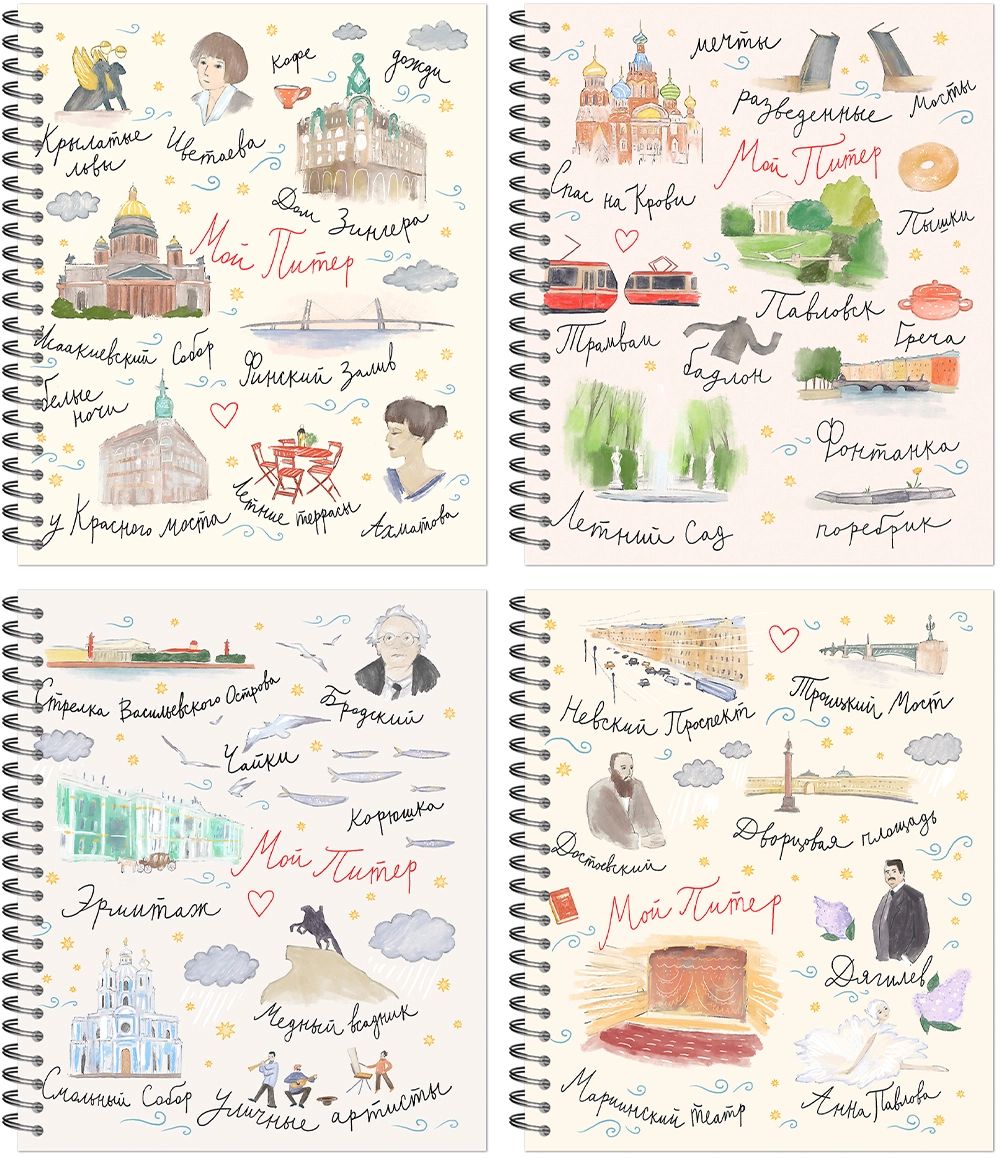 Крылатые
львы
Цветаева
кофе
дожди
Дом Зингера
Мой Питер
Исаакиевский Собор
Финский Залив
белые
ночи
у Красного моста
Летние террасы
Ахматова
мечты
разведенные
мосты
Мой Питер
Спас на Крови
Пышки
Трамваи
Павловск
бадлон
Греча
Фонтанка
Летний Сад
поребрик
Стрелка Васильевского Острова
Бродский
Чайки
Корюшка
Мой Питер
Эрмитаж
Медный всадник
Смольный Собор
Уличные артисты
Невский Проспект
Троицкий Мост
Достоевский
Дворцовая площадь
Мой Питер
Дягилев
Мариинский театр
Анна Павлова